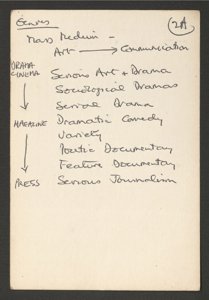 Genres
2A
Mass Medium -
Art → Communication
DRAMA
CINEMA
Serious Art + Drama
Sociological Dramas
Serial Drama
MAGAZINE Dramatic Comedy
Variety
Poetic Documentary
Feature Documentary
PRESS Serious Journalism